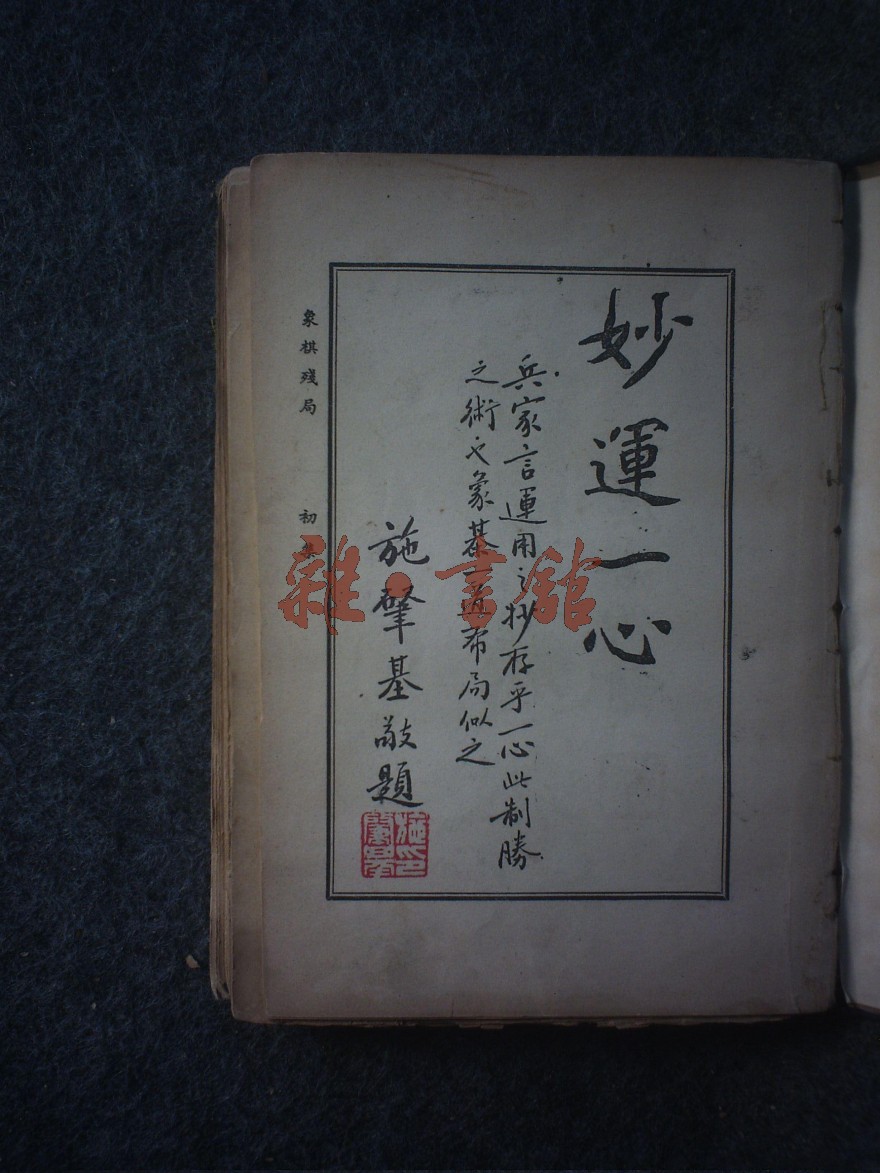 妙運一心
兵家言運用之妙存乎一心此制勝
之術也象棊道布局似之
施肇基敬題
象棋殘局 初集
雜·書館